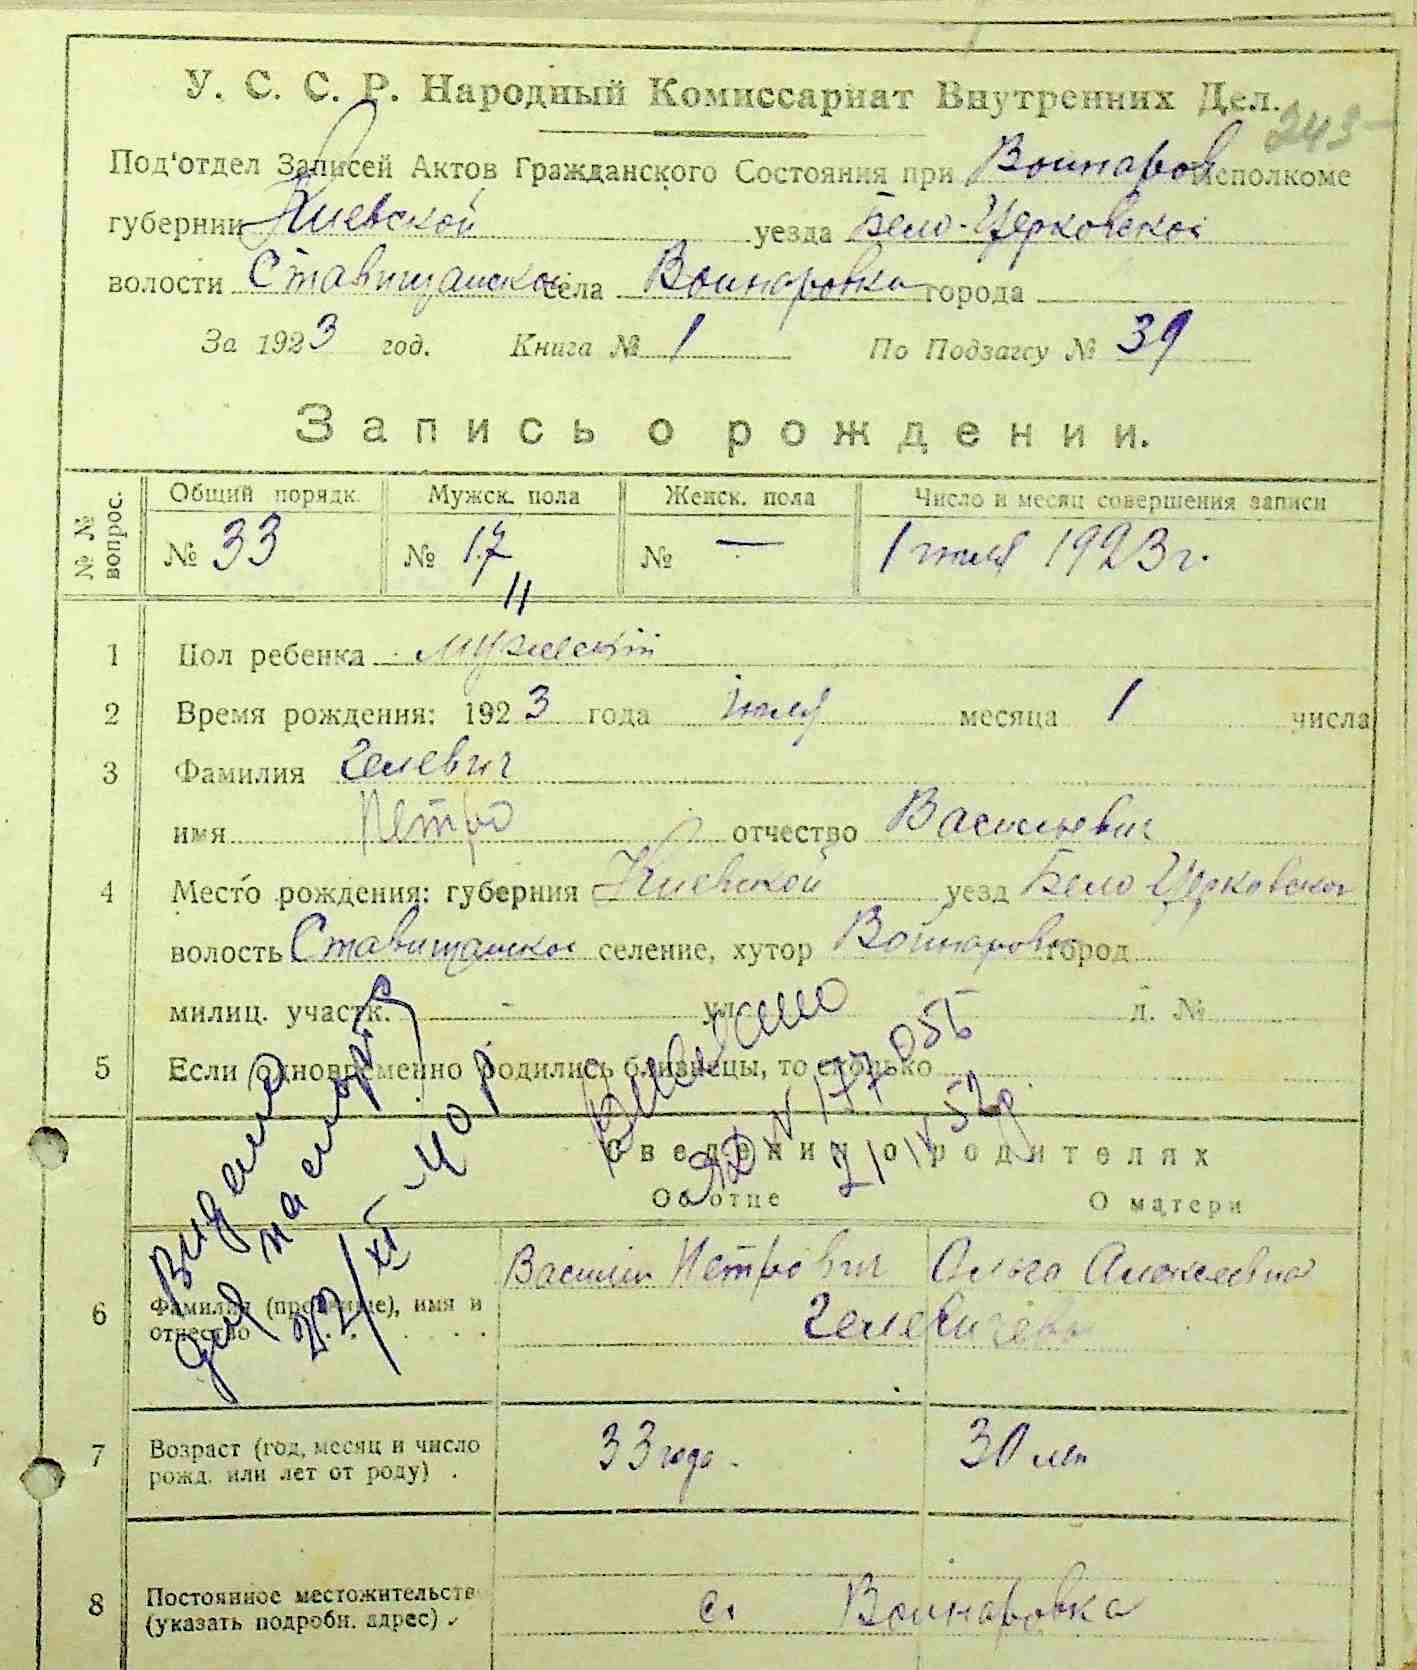 У. С. С. Р. Народный Комиссариат Внутренних Дел.
243
Под'отдел Записей Актов Гражданского Состояния при Войнаров исполкоме
губернии Киевской уезда Бело-Церковской
волости Ставищанской села Войнаровки города
За 1923 год. Книга № 1 По Подзагсу № 39
Запись о рождении.
№ № вопрос.
Общий порядк. Мужск. пола Женск. пола Число и месяц совершения записи
№ 33 № 17 № — 1 июля 1923 г.
1 Пол ребенка мужеский
2 Время рождения: 1923 года июля месяца 1 числа
3 Фамилия Гелевич
имя Петро отчество Васильевич
4 Место рождения: губерния Киевской уезд Бело Церковской
волость Ставищанской селение, хутор Войнаровка город
милиц. участк. - ул. д. №
5 Если одновременно родились близнецы, то сколько
Видано для паспорта 22/XI-40 р
Виписано
ЯД № 177055
2/IX 52р.
Сведения о родителях
Об отце О матери
6 Фамилия (прозвище), имя и отчество
Василий Петрович Ольга Алексеевна
Гелевичевы
7 Возраст (год, месяц и число рожд. или лет от роду) . 33 года. 30 лет
8 Постоянное местожительств (указать подробн. адрес) с. Войнаровка